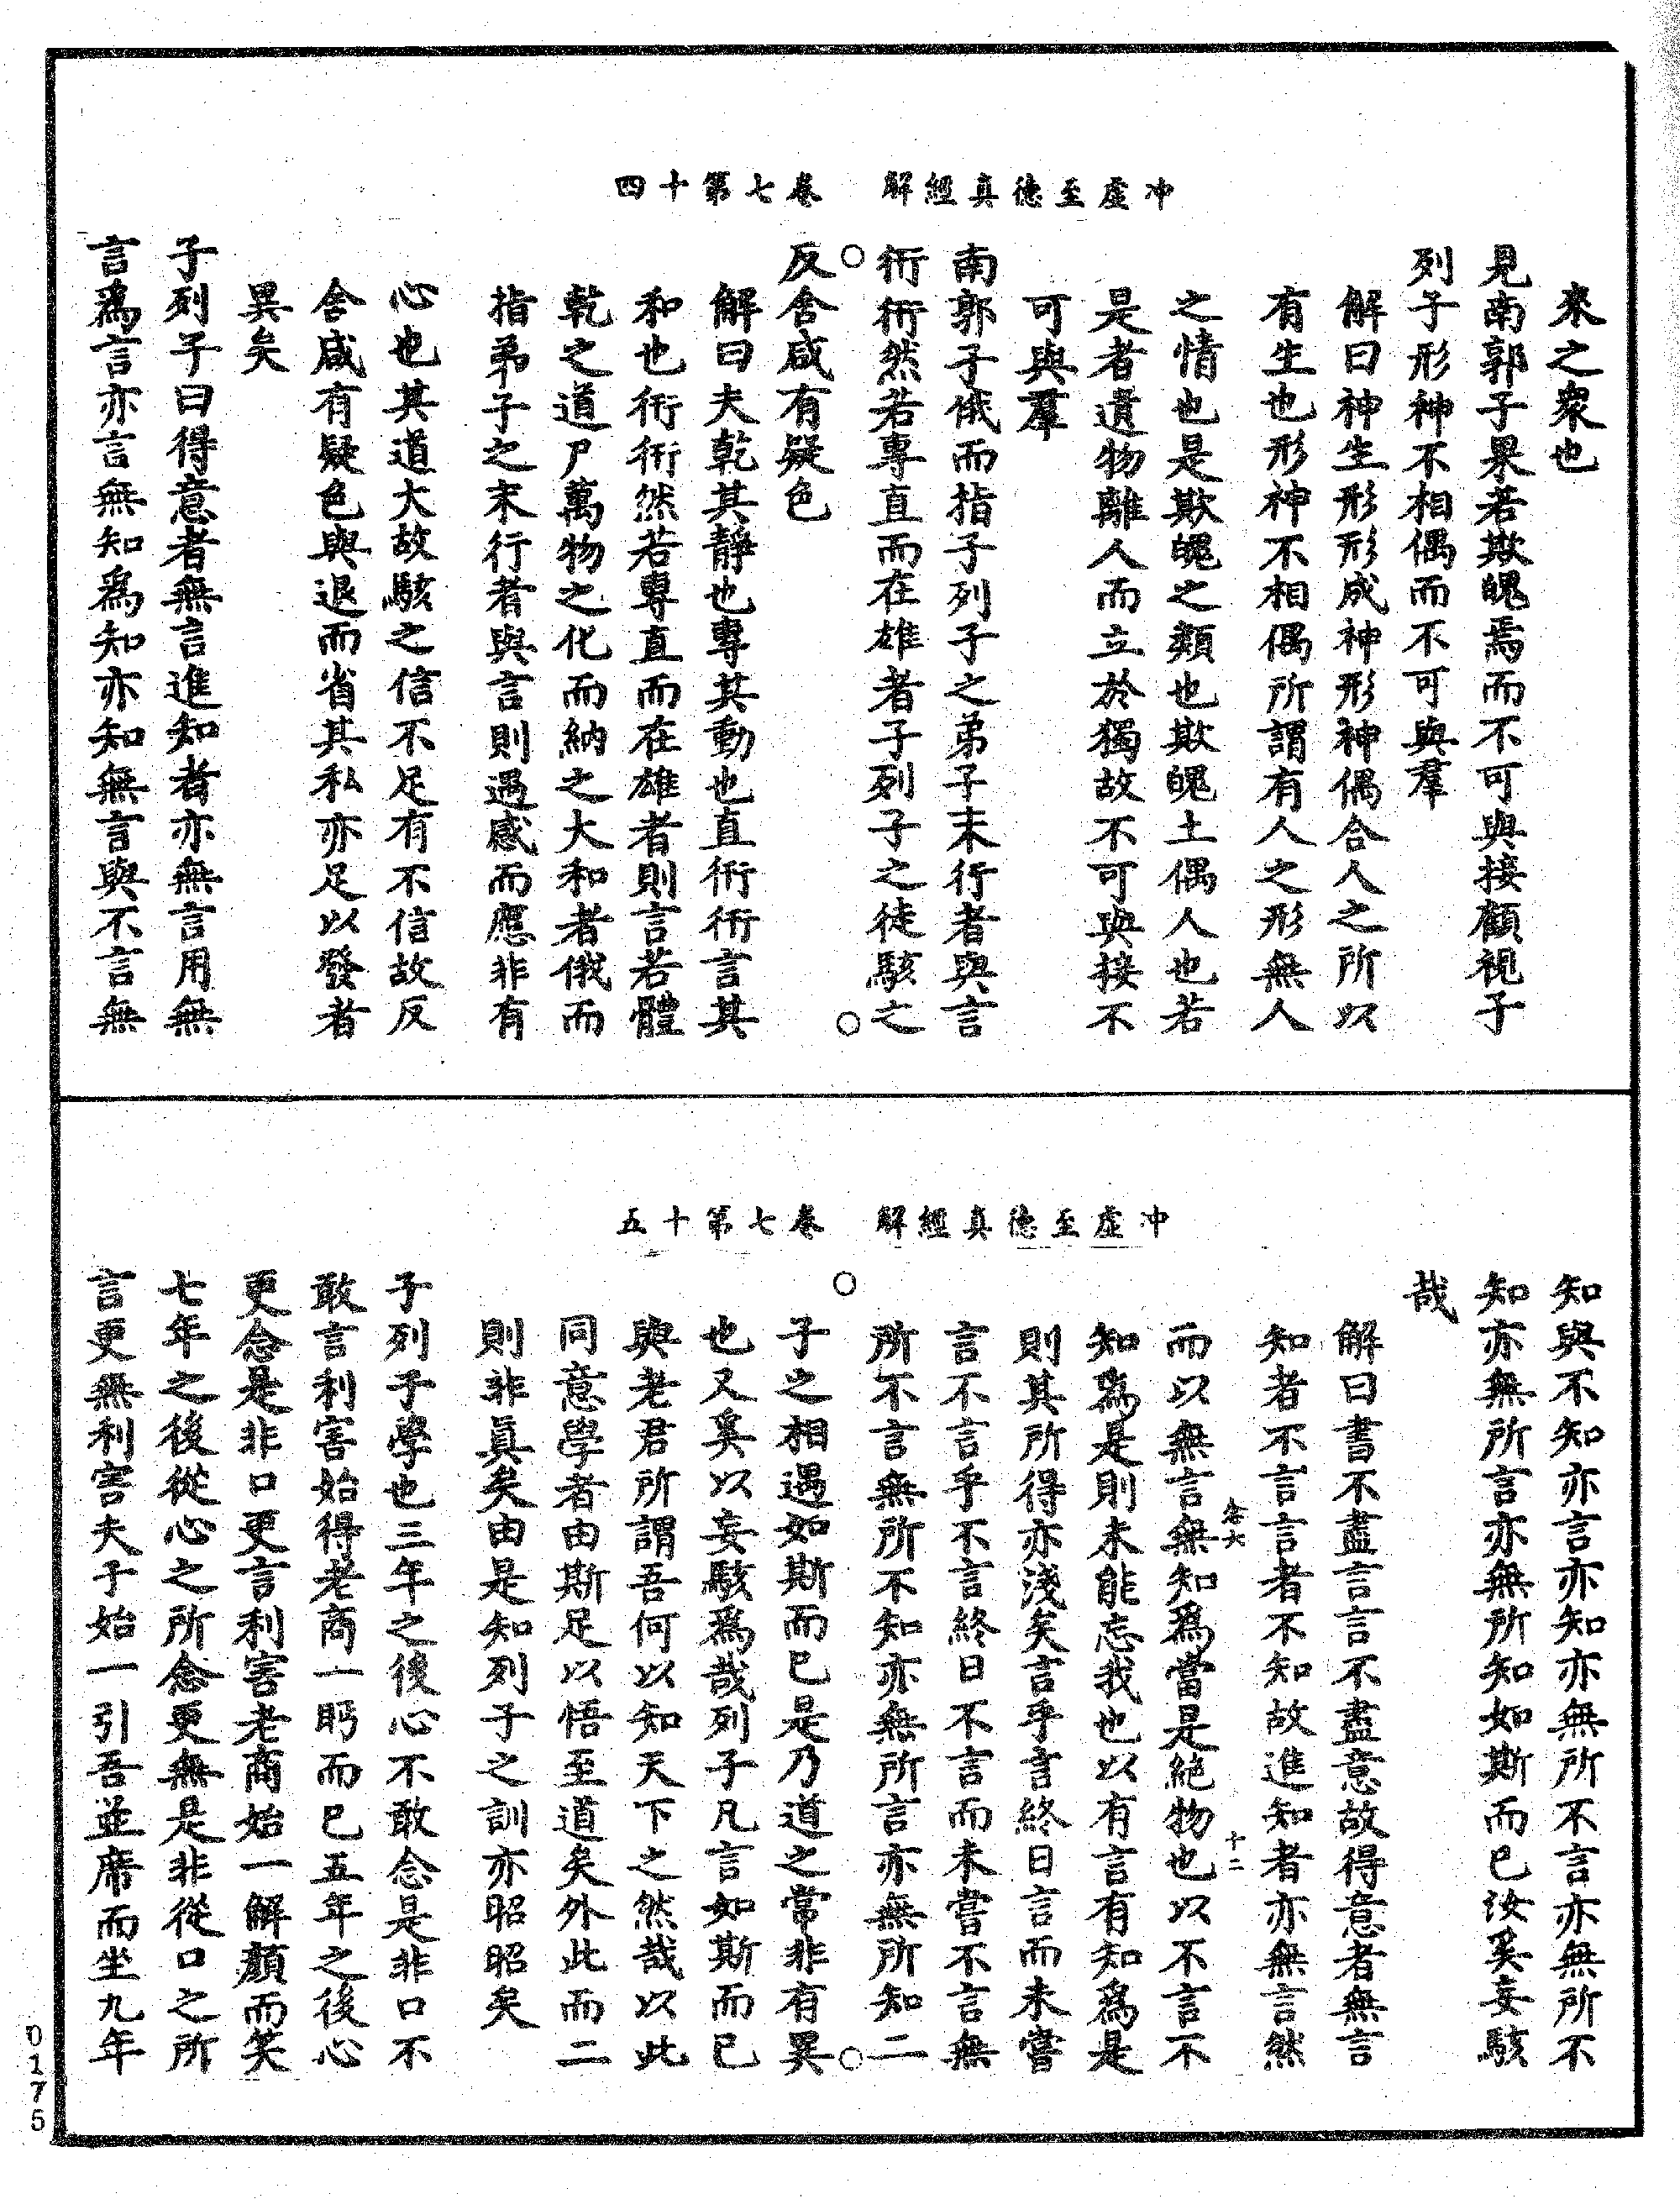 冲虛至德真經解　卷七第十四
來之衆也
見南郭子果若欺魄焉而不可與接顧視子
列子形神不相偶而不可與羣
解曰神生形形成神形神偶合人之所以
有生也形神不相偶所謂有人之形無人
之情也是欺魄之類也欺魄土偶人也若
是者遺物離人而立於獨故不可與接不
可與羣
南郭子俄而指子列子之弟子末行者與言
衎衎然若專直而在雄者子列子之徒駭之
反舍咸有疑色
解曰夫乾其靜也專其動也直衎衎言其
和也衎衎然若專直而在雄者則言若體
乾之道尸萬物之化而納之大和者俄而
指弟子之末行者與言則遇感而應非有
心也其道大故駭之信不足有不信故反
舍咸有疑色與退而省其私亦足以發者
異矣
子列子曰得意者無言進知者亦無言用無
言爲言亦言無知爲知亦知無言與不言無
冲虛至德真經解　卷七第十五
知與不知亦言亦知亦無所不言亦無所不
知亦無所言亦無所知如斯而已汝奚妄駭
哉
解曰書不盡言言不盡意故得意者無言
知者不言言者不知故進知者亦無言然
卷六　十二
而以無言無知爲當是絕物也以不言不
知爲是則未能忘我也以有言有知爲是
則其所得亦淺矣言乎言終日言而未嘗
言不言乎不言終日不言而未嘗不言無
所不言無所不知亦無所言亦無所知二
子之相遇如斯而已是乃道之常非有異
也又奚以妄駭爲哉列子凡言如斯而已
與老君所謂吾何以知天下之然哉以此
同意學者由斯足以悟至道矣外此而二
則非眞矣由是知列子之訓亦昭昭矣
子列子學也三年之後心不敢念是非口不
敢言利害始得老商一眄而已五年之後心
更念是非口更言利害老商始一解顏而笑
七年之後從心之所念更無是非從口之所
言更無利害夫子始一引吾並席而坐九年
0175